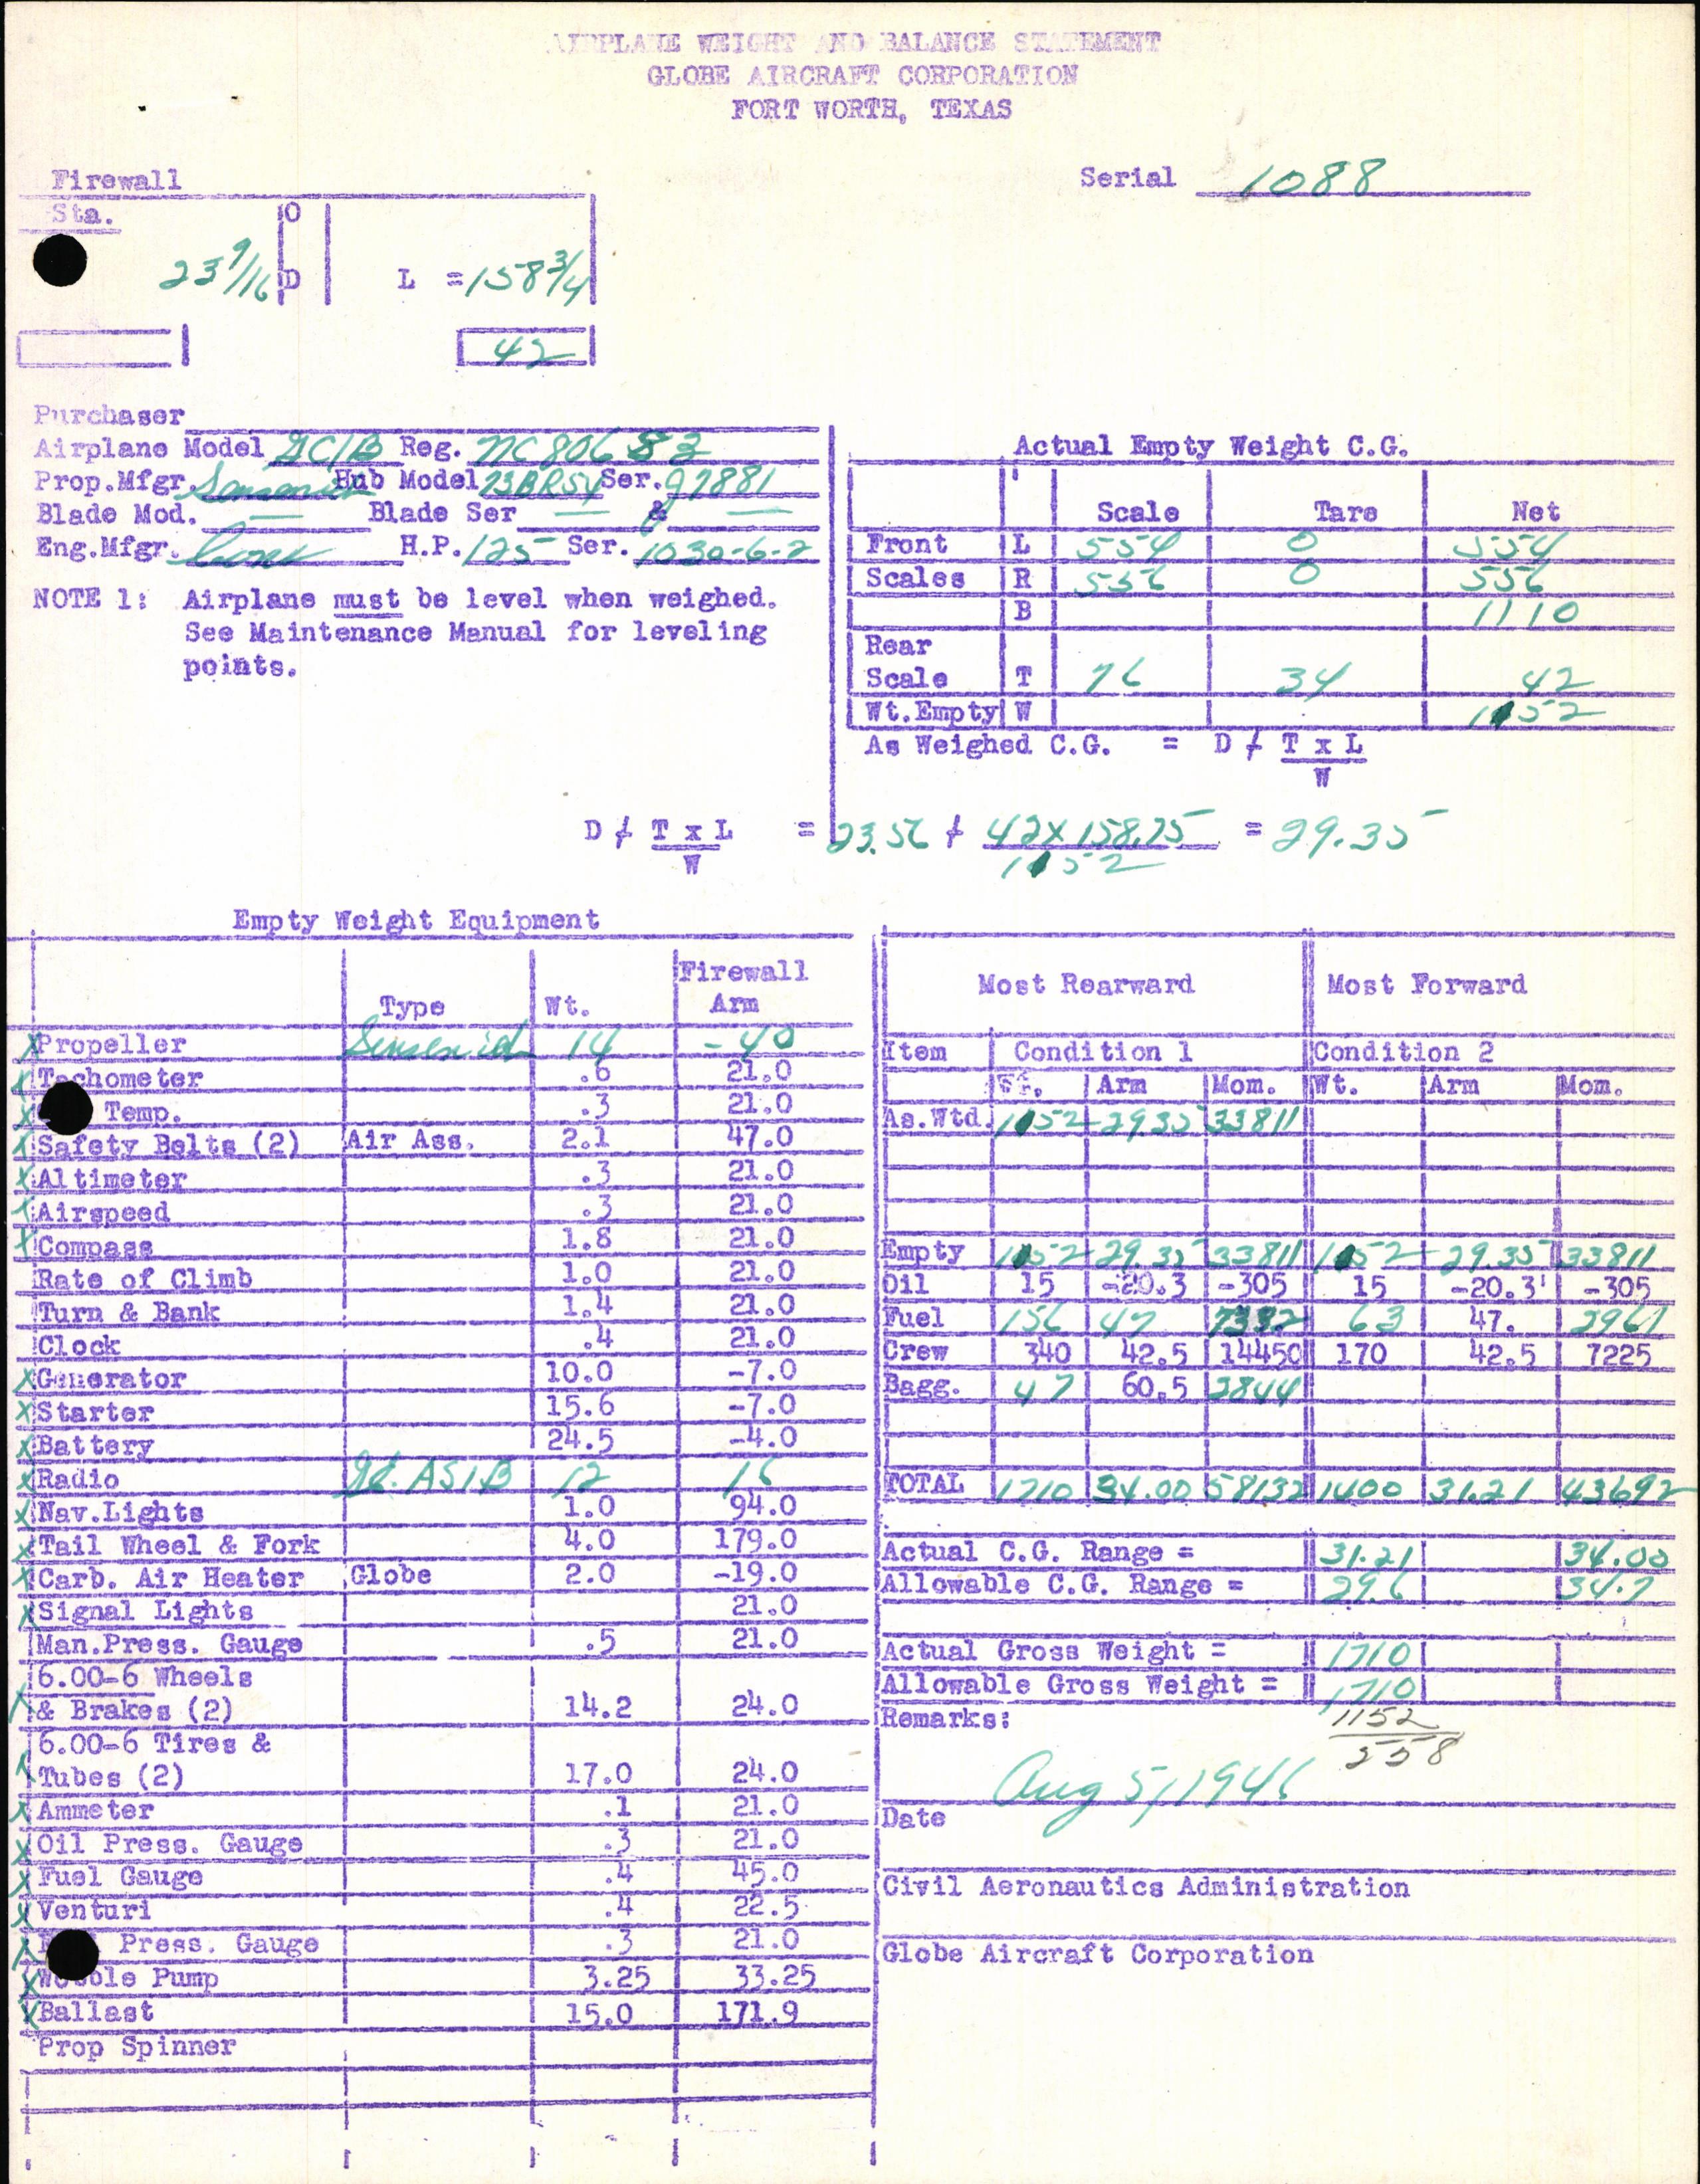 AIRPLANE WEIGHT AND BALANCE STATEMENT
GLOBE AIRCRAFT CORPORATION
FORT WORTH, TEXAS
Firewall
Serial 1088
Sta. O
23 9/16 D L = 158 3/4
42
Purchaser
Airplane Model GC1B Reg. NC 80683
Prop.Mfgr. Hub Model 73BR54 Ser. 97881
Blade Mod. — Blade Ser — & —
Eng.Mfgr. H.P. 125 Ser. 1030-6-2
NOTE 1: Airplane must be level when weighed.
See Maintenance Manual for leveling
points.
Actual Empty Weight C.G.
Scale Tare Net
Front L 554 0 554
Scales R 556 0 556
B 1110
Rear
Scale T 76 34 42
Wt.Empty W 1152
As Weighed C.G. = D + T x L
W
D + T x L = 23.56 + 42 x 158.75 = 29.35
W 1152
Empty Weight Equipment
Type Wt. Firewall Arm
X Propeller Sensenich 14 -40
X Tachometer .6 21.0
X Temp. .3 21.0
X Safety Belts (2) Air Ass. 2.1 47.0
X Altimeter .3 21.0
X Airspeed .3 21.0
X Compass 1.8 21.0
Rate of Climb 1.0 21.0
Turn & Bank 1.4 21.0
Clock .4 21.0
X Generator 10.0 -7.0
X Starter 15.6 -7.0
X Battery 24.5 -4.0
X Radio AS1B 12 16
X Nav.Lights 1.0 94.0
X Tail Wheel & Fork 4.0 179.0
X Carb. Air Heater Globe 2.0 -19.0
X Signal Lights 21.0
Man.Press. Gauge .5 21.0
6.00-6 Wheels
X & Brakes (2) 14.2 24.0
6.00-6 Tires &
X Tubes (2) 17.0 24.0
X Ammeter .1 21.0
X Oil Press. Gauge .3 21.0
X Fuel Gauge .4 45.0
X Venturi .4 22.5
X Press. Gauge .3 21.0
X Wobble Pump 3.25 33.25
X Ballast 15.0 171.9
Prop Spinner
Most Rearward Most Forward
Item Condition 1 Condition 2
Wt. Arm Mom. Wt. Arm Mom.
As.Wtd. 1152 29.35 33811
Empty 1152 29.35 33811 1152 29.35 33811
Oil 15 -20.3 -305 15 -20.3 -305
Fuel 156 47 7332 63 47. 2961
Crew 340 42.5 14450 170 42.5 7225
Bagg. 47 60.5 2844
TOTAL 1710 34.00 58132 1400 31.21 43692
Actual C.G. Range = 31.21 34.00
Allowable C.G. Range = 29.6 34.7
Actual Gross Weight = 1710
Allowable Gross Weight = 1710
Remarks: 1152
558
Aug 5, 1946
Date
Civil Aeronautics Administration
Globe Aircraft Corporation